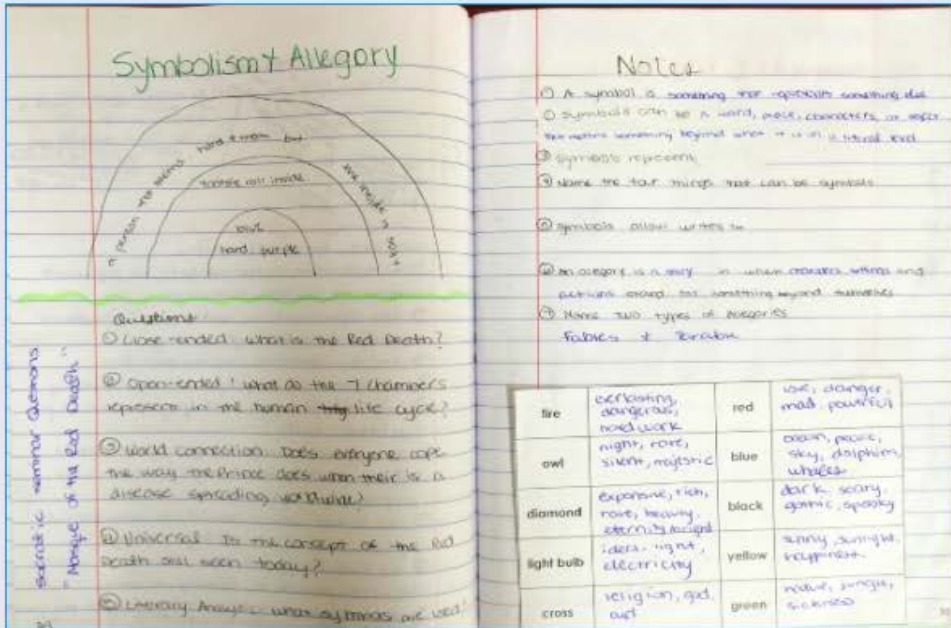 Symbolism & Allegory
a person that seems hard & mean but the inside is soft
tootsie roll inside
hard, purple
Questions
① Close-ended: what is the Red Death?
② Open-ended: what do the 7 chambers
represent in the human life cycle?
③ World connection: Does everyone cope
the way the Prince does when their is a
disease spreading worldwide?
④ Universal: Is the concept of the Red
Death still seen today?
⑤ Literary Analysis: what symbols are used?
Socratic seminar Questions
"Masque of the Red Death"
Notes
① A symbol is something that represents something else
② Symbols can be a word, place, character, or object
that means something beyond what it is on a literal level
③ Symbols represent
④ Name the four things that can be symbols
⑤ Symbols allow writers to
⑥ An allegory is a story in which characters, settings and
actions stand for something beyond themselves
⑦ Name two types of allegories
Fables &
fire
everlasting,
dangerous,
hard work
red
love, danger,
mad, powerful
owl
night, rare,
silent, majestic
blue
ocean, peace,
sky, dolphins,
whales
diamond
expensive, rich,
rare, beauty,
eternity, bright
black
dark, scary,
gothic, spooky
light bulb
idea, light,
electricity
yellow
sunny, sunlight,
happiness
cross
religion, god,
green
nature, jungle,
sickness